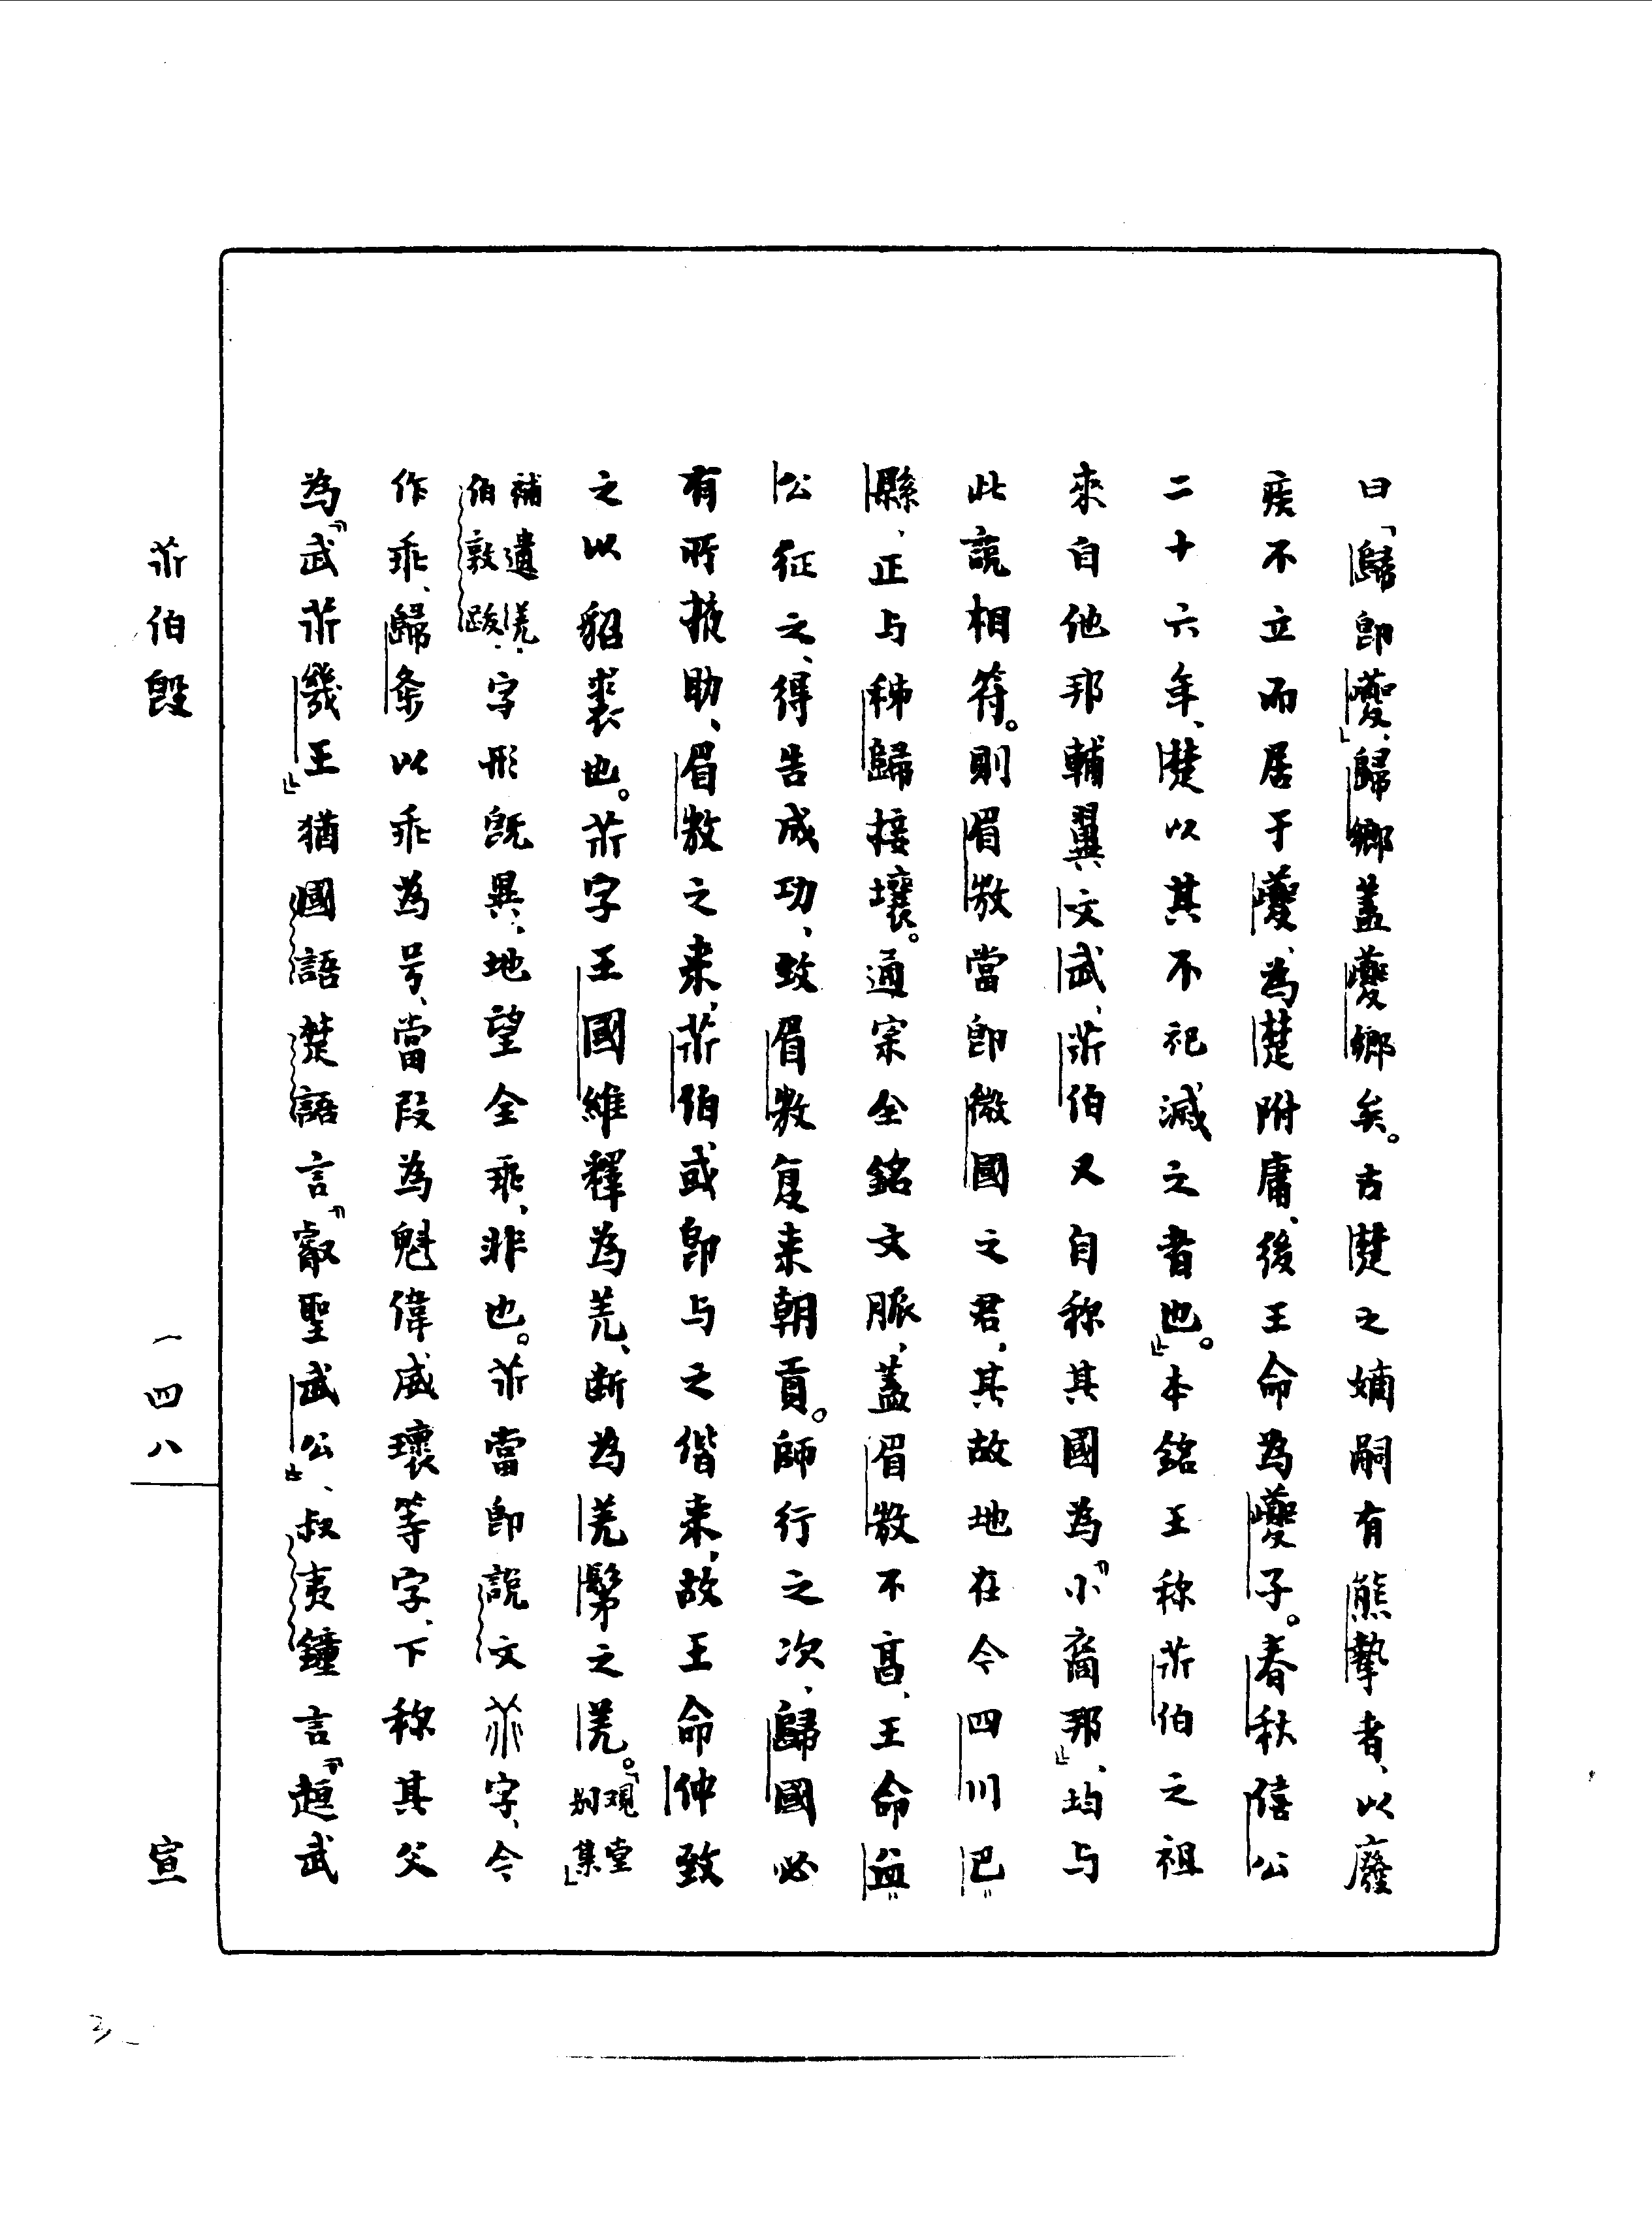 曰「歸即夔」、歸鄉蓋夔鄉矣。古楚之嫡嗣有熊摯者、以廢
疾不立而居于夔、為楚附庸、後王命為夔子。春秋僖公
二十六年、楚以其不祀滅之者也』。本銘王称𦮃伯之祖
來自他邦輔翼文武、𦮃伯又自称其國為『小裔邦』、均与
此說相符。則眉敖當即微國之君、其故地在今四川巴
縣、正与秭歸接壤。通宗全銘文脈、蓋眉敖不享、王命益
公征之、得告成功、致眉敖复来朝貢。師行之次、歸國必
有所掖助、眉敖之来、𦮃伯或即与之偕来、故王命仲致
之以貂裘也。𦮃字王國維釋為羌、断為羌髳之羌。「觀堂別集
補遺羌伯敦跋」字形既異、地望全乖、非也。𦮃當即說文𦮃字、今
作乖、歸夆以乖為号、當叚為魁偉威瓌等字、下称其父
為『武𦮃幾王』猶國語楚語言『叡聖武公』、叔夷鐘言『𧻚武
𦮃伯𣪘
一四八
宣